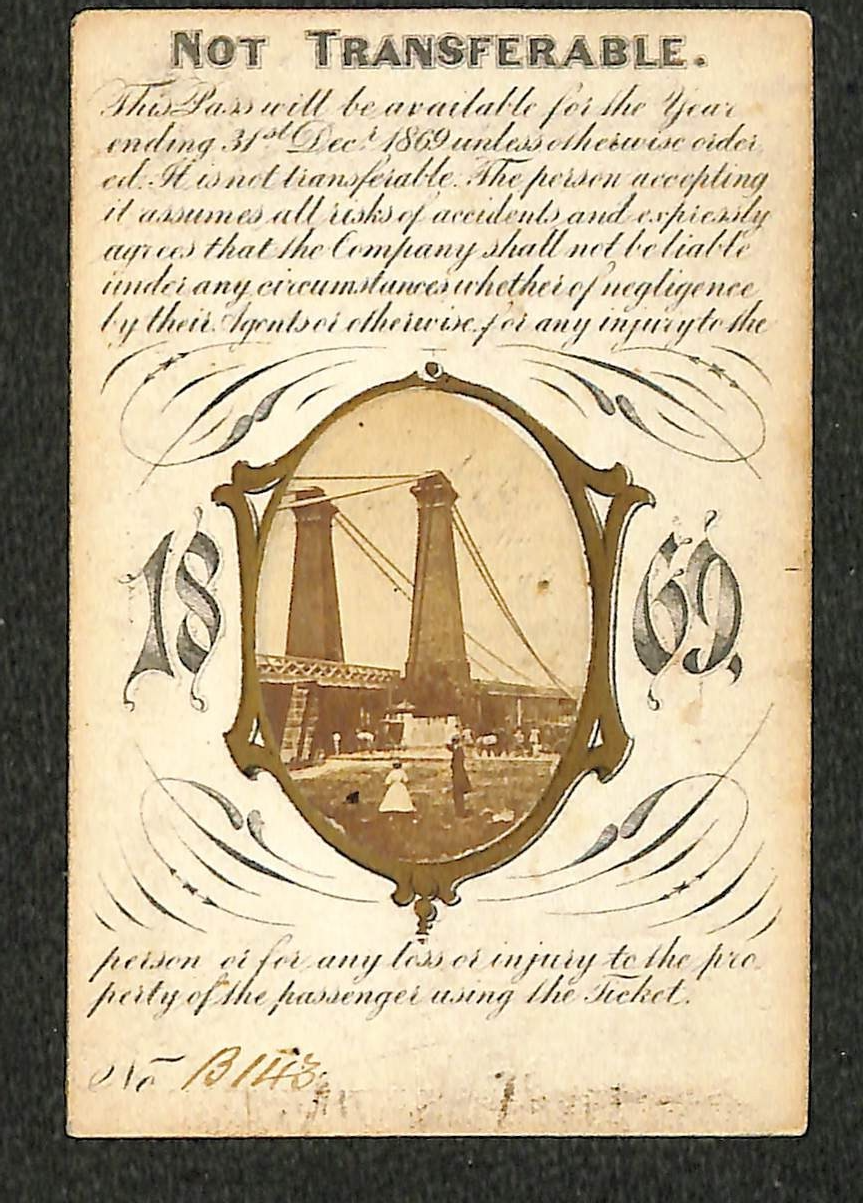 NOT TRANSFERABLE.
This Pass will be available for the Year
ending 31st Decr 1869 unless otherwise order
ed. It is not transferable. The person accepting
it assumes all risks of accidents and expressly
agrees that the Company shall not be liable
under any circumstances whether of negligence
by their Agents or otherwise, for any injury to the
18 69.
person or for any loss or injury to the pro
perty of the passenger using the Ticket.
No B143